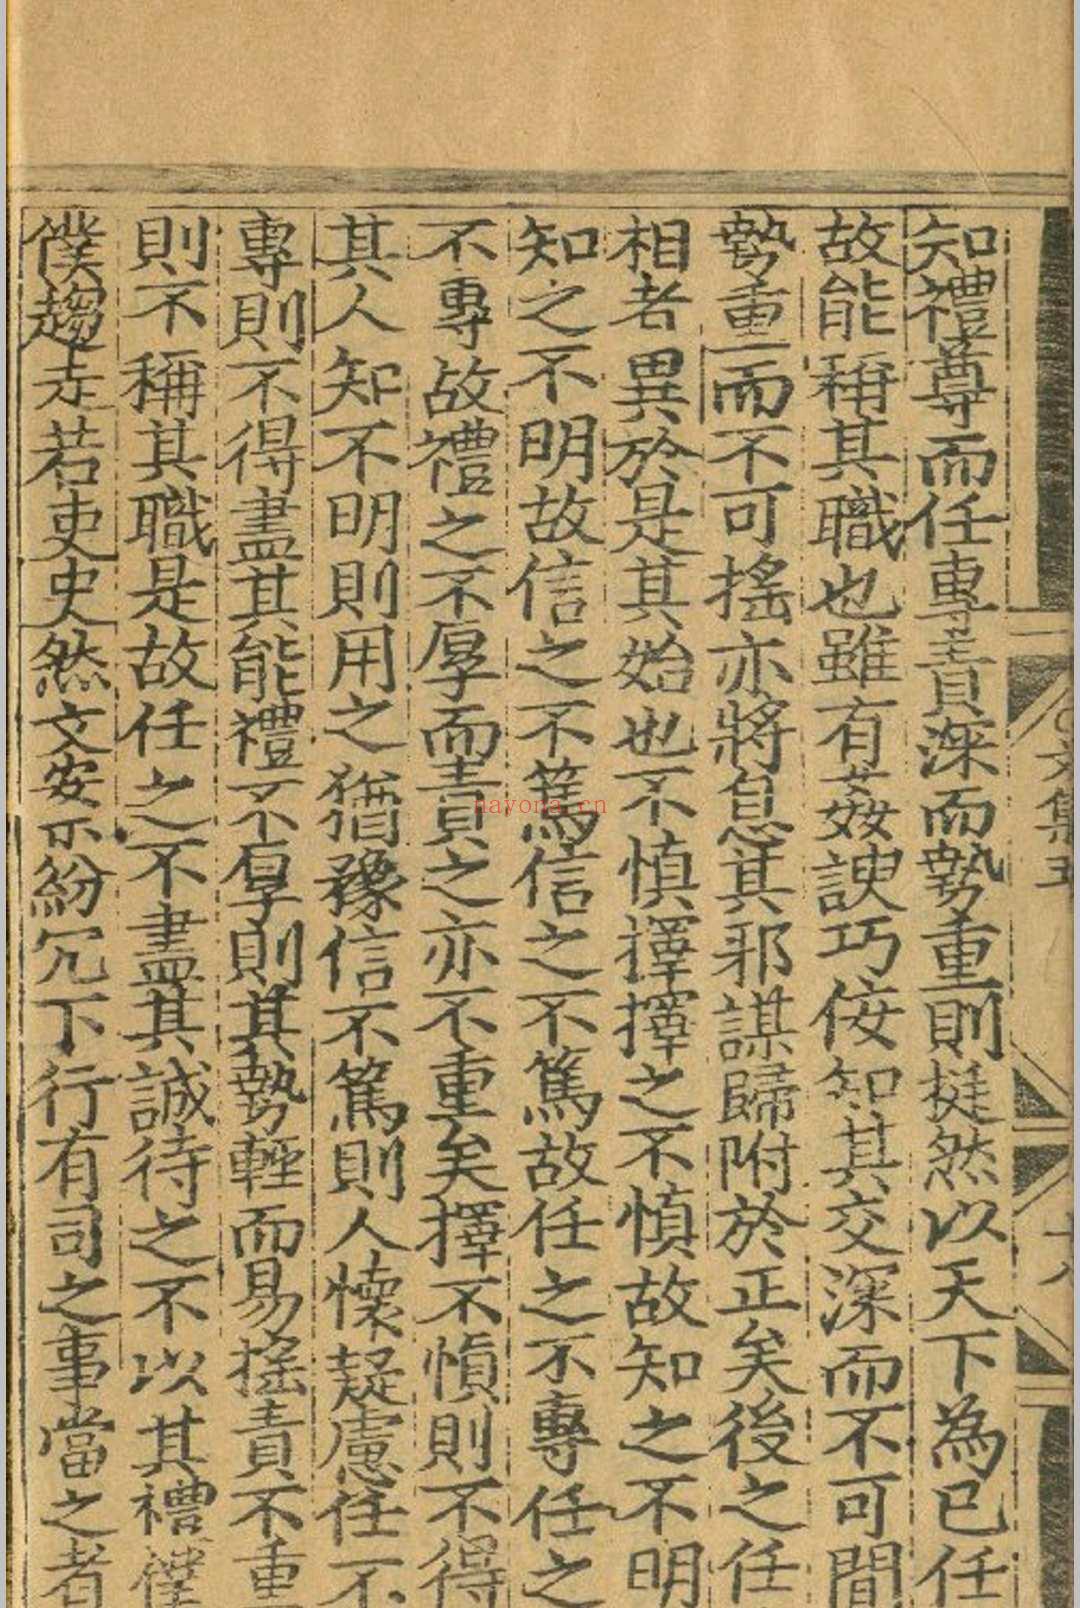 文集五
十八
知禮尊而任專責深而勢重則挺然以天下為已任
故能稱其職也雖有姦諛巧佞知其交深而不可間
勢重而不可搖亦將息其邪謀歸附於正矣後之任
相者異於是其始也不慎擇擇之不慎故知之不明
知之不明故信之不篤信之不篤故任之不專任之
不專故禮之不厚而責之亦不重矣擇不慎則不得
其人知不明則用之猶豫信不篤則人懷疑慮任不
專則不得盡其能禮不厚則其勢輕而易搖責不重
則不稱其職是故任之不盡其誠待之不以其禮僕
僕趨走若吏史然文案紛冗下行有司之事當之者
nayona.cn